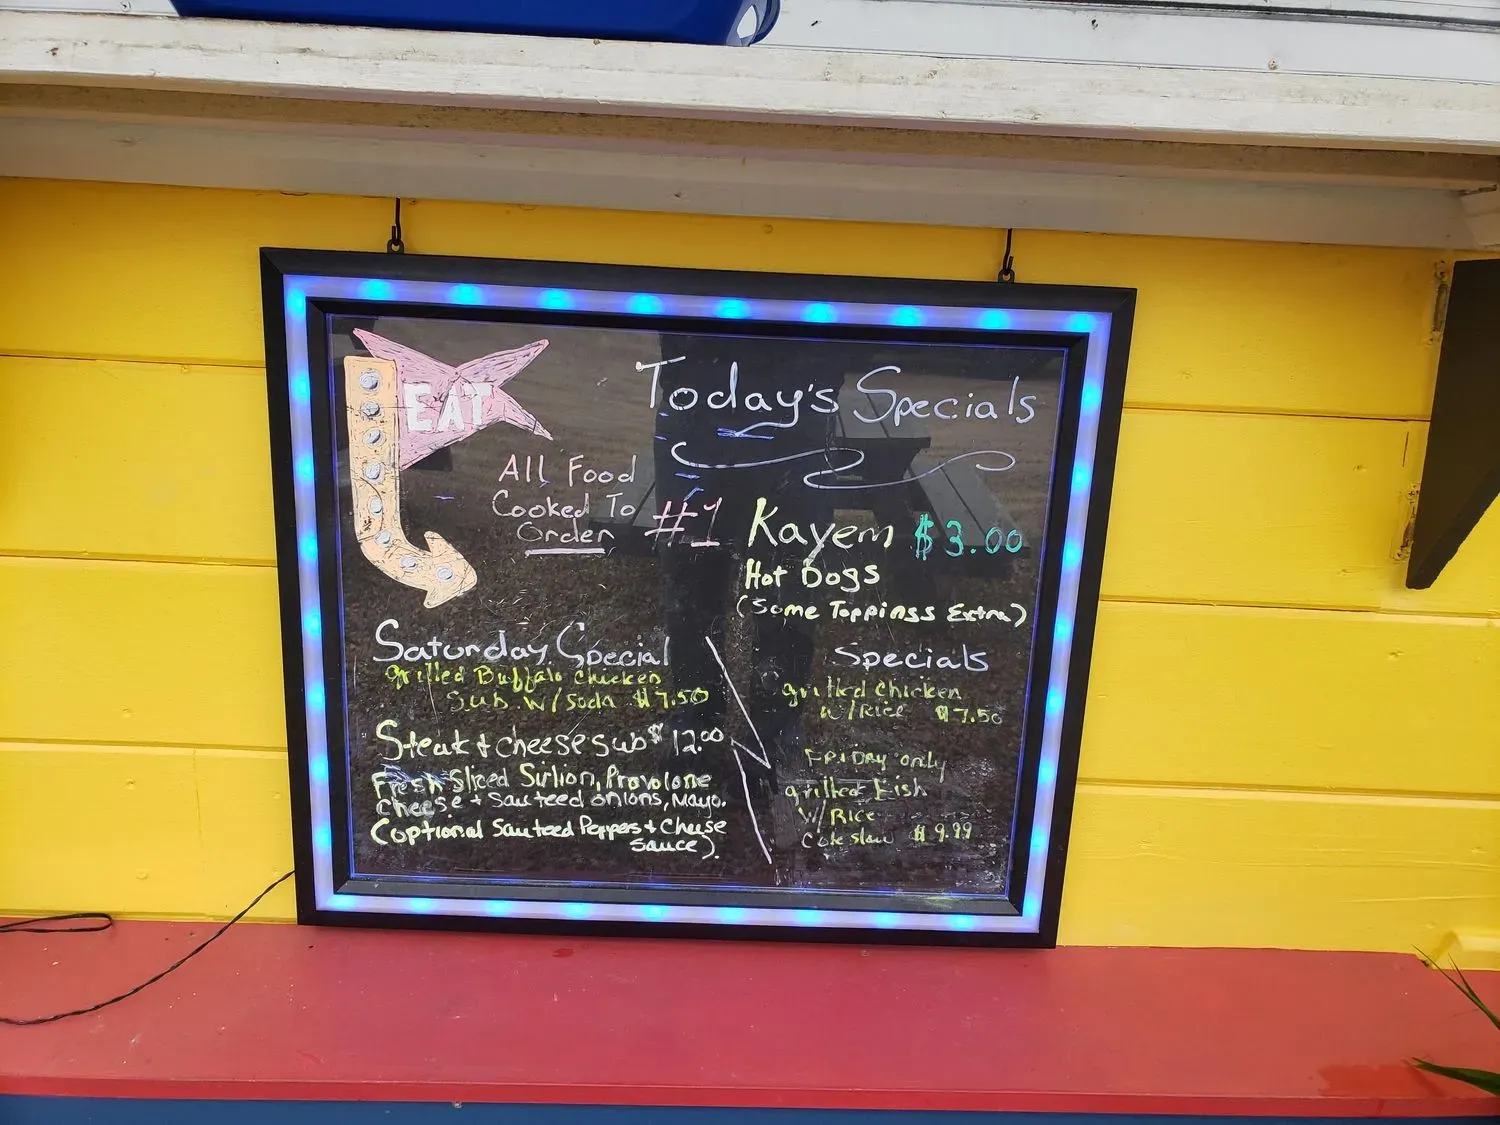 EAT
Today's Specials
All Food
Cooked To
Order
#1 Kayem $3.00
Hot Dogs
(Some Toppings Extra)
Saturday Special
grilled Buffalo chicken
Sub w/soda $7.50
Steak + cheese sub $12.00
Fresh Sliced Sirlion, Provolone
cheese + Sauteed onions, Mayo.
(optional Sauteed Peppers + Cheese
Sauce).
Specials
grilled chicken
w/Rice $7.50
Friday only
grilled Fish
w/Rice
Cole slaw $9.99